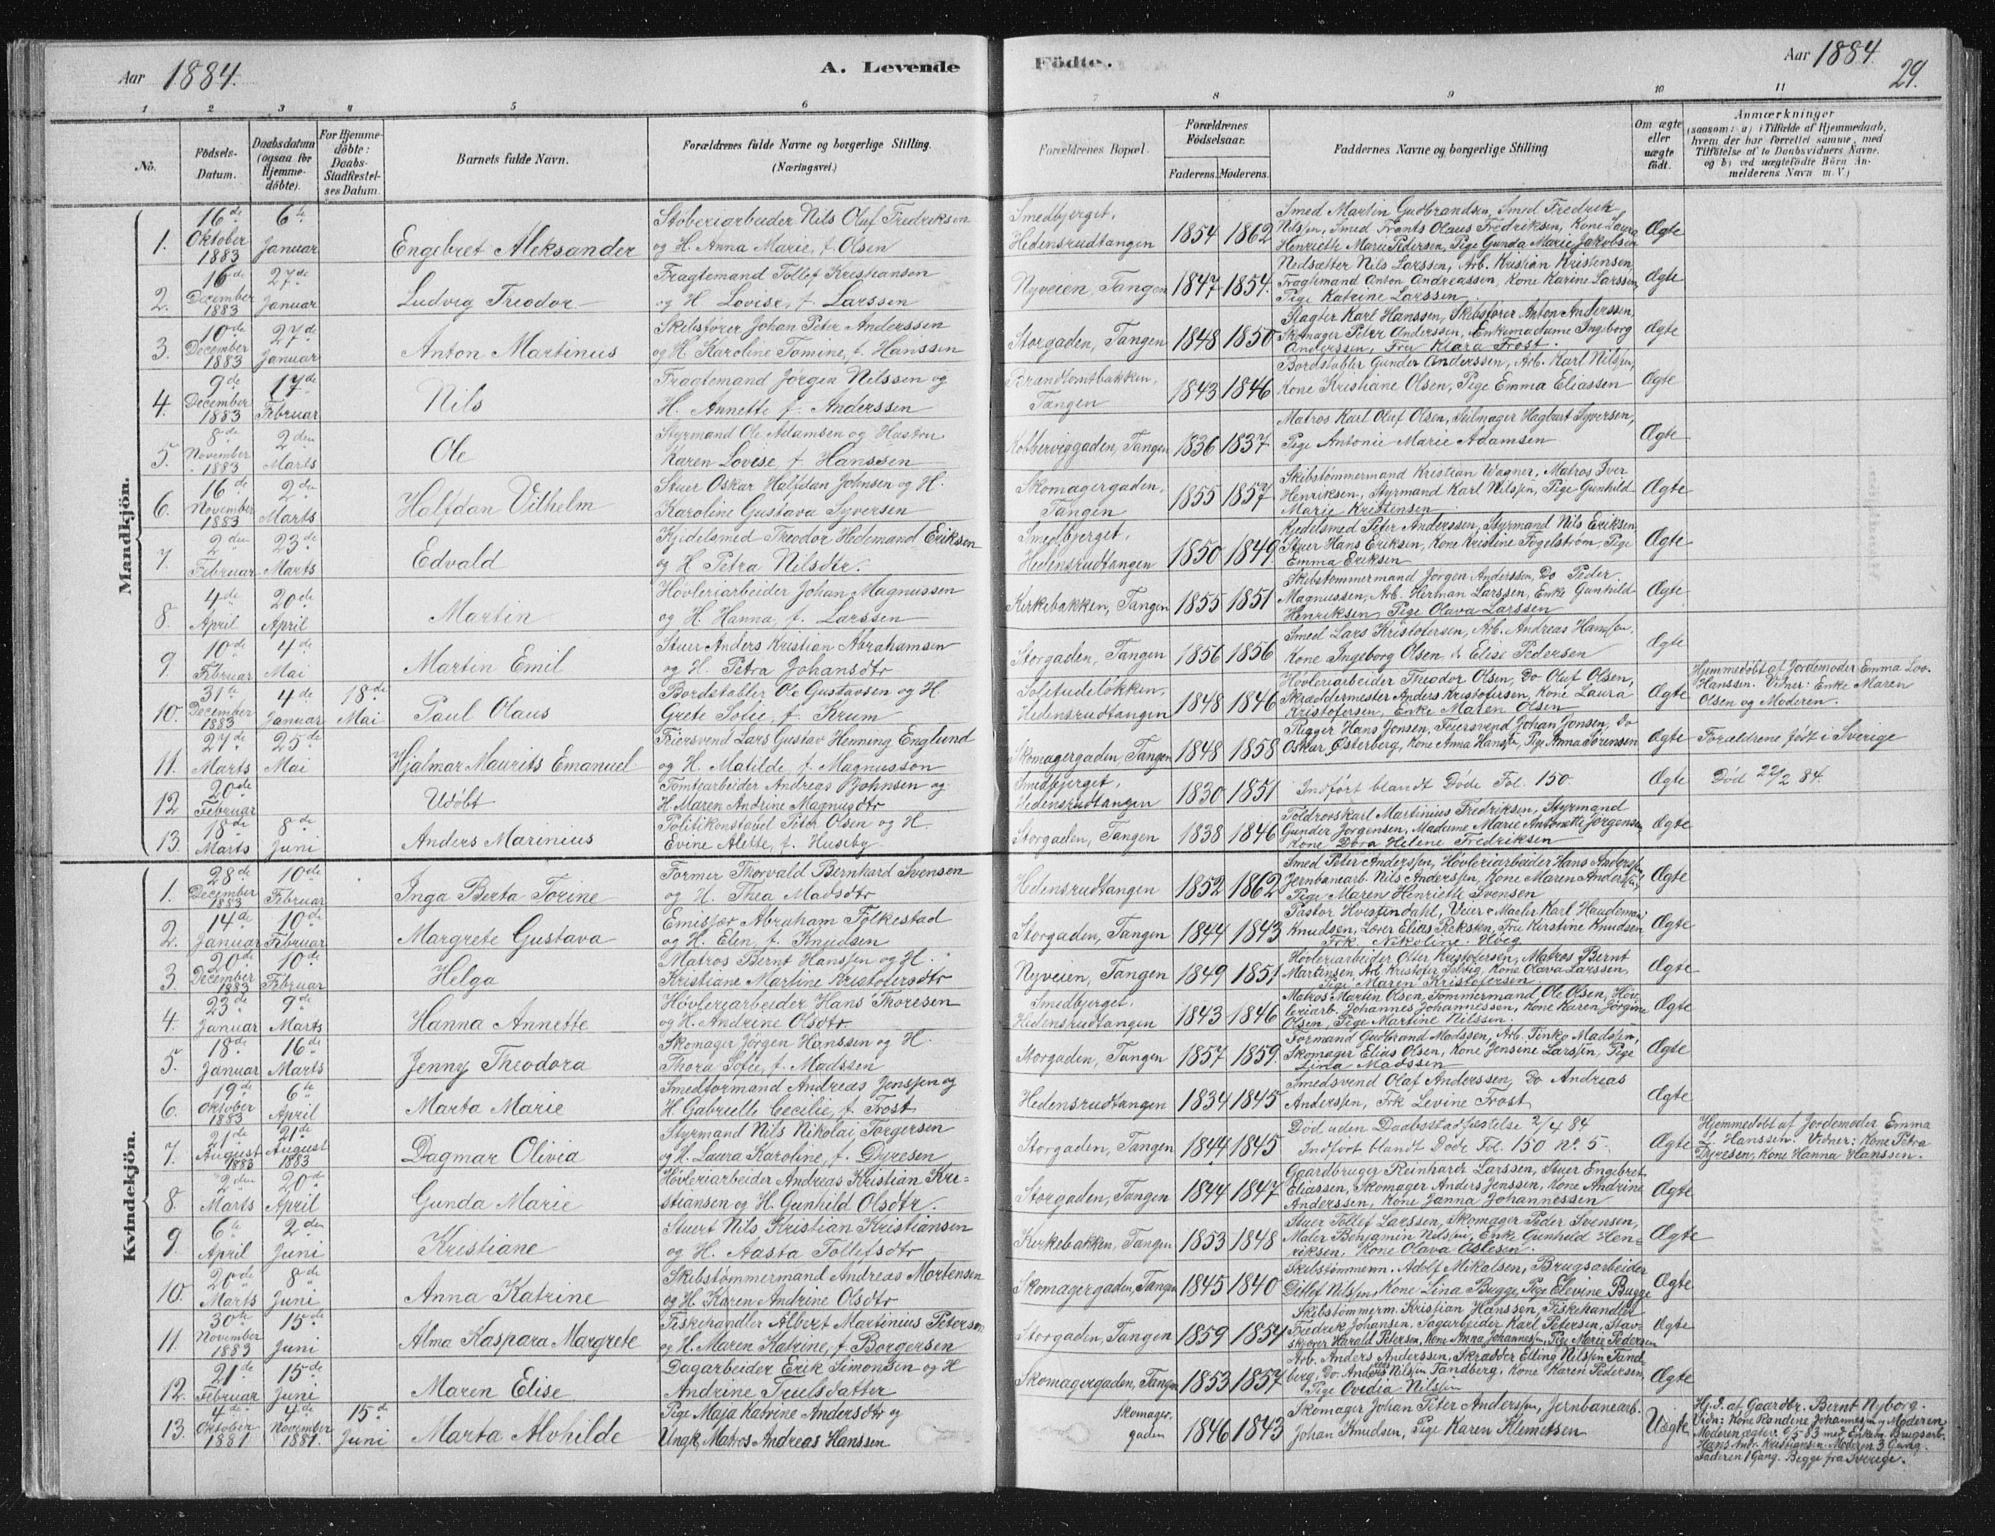 Aar 1884. A. Levende Födte. Aar 1884. 29.
1 2 3 4 5 6 7 8 9 10 11
No. Födsels-Datum. Daabsdatum (ogsaa för Hjemmedöbte). For Hjemmedöbte: Daabs-Stadfæstelses Datum. Barnets fulde Navn. Forældrenes fulde Navne og borgerlige Stilling. (Næringsvei.) Forældrenes Bopæl. Forældrenes Födselsaar. Faderens. Moderens. Faddernes Navne og borgerlige Stilling Om ægte eller uægte födt. Anmærkninger (saasom: a) i Tilfælde af Hjemmedaab, hvem der har forrettet samme, med Tilföielse af to Daabsvidners Navne, og b) ved uægtefödte Börn Anmelderens Navn m. V.)
Mandkjön.
1. 16de Oktober 1883 6te Januar Engebret Aleksander Støberiarbeider Nils Oluf Fredriksen og H. Anna Marie, f. Olsen Smedbjerget, Hedensrudtangen 1854 1862 Smed Martin Gudbrandsen, Smed Fredrik Nilssen, Smed Frants Olaus Fredriksen, Kone Laura Henriette Marie Pedersen, Pige Gunda Marie Jakobsen Ægte
2. 16de December 1883 27de Januar Ludvig Theodor Fragtemand Tollef Kristiansen og H. Lovise, f. Larssen Nyveien, Tangen 1847 1854. Nedsætter Nils Larssen, Arb. Kristian Kristensen, Fragtemand Anton Andreassen, Kone Karine Larssen, Pige Katrine Larssen Ægte
3. 10de December 1883 27de Januar Anton Martinus Skibsfører Johan Peter Anderssen og H. Karoline Tomine, f. Hanssen Storgaden, Tangen 1848 1850 Slagter Karl Hanssen, Skibsfører Anton Anderssen, Skomager Peter Anderssen, Enkemadame Ingeborg Anderssen, Fru Klara Frost. Ægte
4. 9de December 1883 17de Februar Nils Fragtemand Jørgen Nilssen og H. Annette f. Anderssen Brandtomtbakken, Tangen 1843 1846 Bordstabler Gunder Anderssen, Arb. Karl Nilssen, Kone Kristiane Olsen, Pige Emma Eliassen Ægte
5. 8de November 1883 2den Marts Ole Styrmand Ole Adamsen og Hustru Karen Lovise, f. Hanssen Kobberviggaden, Tangen 1836 1837 Matros Karl Oluf Olsen, Seilmager Hagbart Syversen, Pige Antonie Marie Adamsen Ægte
6. 16de November 1883 2den Marts Halfdan Vilhelm Stuer Oskar Halfdan Johnsen og H. Karoline Gustava Syversen Skomagergaden, Tangen 1855 1857 Skibstømmermand Kristian Wagner, Matros Iver Henriksen, Styrmand Karl Nilssen, Pige Gunhild Marie Kristensen Ægte
7. 2den Februar 23de Marts Edvald Kjedelsmed Theodor Hedemand Eriksen og H. Petra Nilsdtr. Smedbjerget, Hedensrudtangen 1850 1849. Kjedelsmed Peter Anderssen, Styrmand Nils Eriksen, Stuer Hans Eriksen, Kone Kristine Fogelstrøm, Pige Emma Eriksen Ægte
8. 4de April 20de April Martin Høvleriarbeider Johan Magnussen og H. Hanna, f. Larssen Kirkebakken, Tangen 1855 1851 Skibstømmermand Jørgen Anderssen, Do Peder Magnussen, Arb. Herman Larssen, Enke Gunhild Henriksen, Pige Olava Larssen Ægte
9. 10de Februar 4de Mai Martin Emil Stuer Anders Kristian Abrahamsen og H. Petra Johansdtr Storgaden, Tangen 1856 1856 Smed Lars Kristofersen, Arb. Andreas Hanssen, Kone Ingeborg Olsen, Elise Pedersen Ægte
10. 31te December 1883 4de Januar 18de Mai Paul Olaus Bordstabler Ole Gustavsen og H. Grete Sofie, f. Krum Solitudeløkken, Hedensrudtangen 1848 1846 Høvleriarbeider Theodor Olsen, Do Oluf Olsen, Skræddermester Anders Kristofersen, Kone Laura Kristofersen, Enke Maren Olsen Ægte Hjemmedøbt af Jordemoder Emma Hanssen. Vidner: Enke Maren Olsen og Moderen.
11. 27de Marts 25de Mai Hjalmar Maurits Emanuel Feiersvend Lars Gustav Henning Englund og H. Matilde f. Magnusson Skomagergaden, Tangen 1848 1858 Rigger Hans Jonsen, Feiersvend Johan Jonsen, Do Oskar Østerberg, Kone Anna Hanssen, Pige Anna Sørensen Ægte Forældrene født i Sverige
12 20de Februar Udøbt Tomtearbeider Andreas Johnsen og H. Maren Andrine Magnusdtr Smedbjerget, Hedensrudtangen 1830 1851 Indført blandt Døde Fol. 150 Ægte Død 22/2 84
13. 18de Marts 8de Juni Anders Marinius Politikonstabel Peter Olsen og H. Evine Alette, f. Huseby Storgaden, Tangen 1838 1846 Toldroerskarl Martinius Fredriksen, Styrmand Gunder Jørgensen, Madame Marie Antonette Jørgensen, Kone Dora Helene Fredriksen Ægte
Kvindekjön.
1. 28de December 1883 10de Februar Inga Berta Torine Former Thorvald Bernhard Svensen og H. Thea Madsdtr Hedensrudtangen 1852 1862 Smed Peter Anderssen, Høvleriarbeider Hans Anderssen, Jernbanearb. Nils Anderssen, Kone Maren Anderssen, Pige Maren Henriette Svensen Ægte
2. 14de Januar 10de Februar Margrete Gustava Abraham Folkestad og H. Elen, f. Knudsen Storgaden, Tangen 1844 1843 Pastor Hvistendahl, Veier & Maaler Karl Knudsen, Lærer Elias Reksten, Fru Kirstine Knudsen Frk. Nikoline Høeg Ægte
3. 20de December 1883 10de Februar Helga Matros Bernt Hanssen og H. Kristiane Martine Kristofersdtr Nyveien, Tangen 1849 1851 Høvleriarbeider Olter Kristofersen, Matros Bernt Martinsen, Arb. Kristofer Solvig, Kone Olava Larssen, Pige Maren Kristofersen Ægte
4. 23de Januar 9de Marts Hanna Annette Høvleriarbeider Hans Thoresen og H. Andrine Olsdtr. Smedbjerget, Hedensrudtangen 1843 1846 Matros Martin Olsen, Tømmermand Ole Olsen, Høvleriarb. Johannes Johannessen, Kone Karen Jørgine Olsen, Pige Martine Nilssen Ægte
5. 18de Januar 16de Marts Jenny Theodora Skomager Jørgen Hanssen og H. Thora Sofie, f. Madssen Storgaden, Tangen 1857 1859. Formand Gudbrand Madssen, Arb. Tinke Madssen, Skomager Elias Olsen, Kone Jensine Larssen, Pige Lina Madssen Ægte
6. 19de Oktober 1883 6te April Marta Marie Smedformand Andreas Jenssen og H. Gabrielle Cecilie, f. Frost Hedensrudtangen 1834 1845 Smedsvend Olaf Anderssen, Do Andreas Anderssen, Frk Levine Frost Ægte
7. 21de August 1883 21de August 1883 Dagmar Olivia Styrmand Nils Nikolai Torgersen og H. Laura Karoline, f. Dyresen Storgaden, Tangen 1844 1845 Død uden Daabsstadfæstelse 2/4 84 Indført blandt Døde Fol. 150 No 5. Ægte Hjemmedøbt af Jordemoder Emma Hanssen. Vidner: Kone Petra Dyresen, Kone Hanna Hanssen.
8. 2den Marts 20de April Gunda Marie Høvleriarbeider Andreas Kristian Kristiansen og H. Gunhild Olsdtr. Storgaden, Tangen 1844 1847 Gaardbruger Reinhardt Larssen, Stuer Engebret Eliassen, Skomager Anders Jenssen, Kone Andrine Anderssen, Kone Janna Johannessen Ægte
9. 6te April 2den Juni Kristiane Stuert Nils Kristian Kristiansen og H. Aasta Tollefsdtr Kirkebakken, Tangen 1853 1848 Stuer Tollef Larssen, Skomager Peder Svensen, Maler Benjamin Nilssen, Enke Gunhild Henriksen, Kone Olava Aslesen. Ægte
10. 20de Marts 8de Juni Anna Katrine Skibstømmermand Andreas Mortensen og H. Karen Andrine Olsdtr Skomagergaden, Tangen 1845 1840 Skibstømmerm. Adolf Mikalsen, Brugsarbeider Detlef Nilssen, Kone Lina Bugge, Pige Elevine Bugge Ægte
11. 30te November 1883 15de Juni Alma Kaspara Margrete Fiskehandler Albert Martinius Petersen og H. Maren Katrine, f. Borgersen Storgaden, Tangen 1859 1854 Skibstømmerm. Kristian Hanssen, Fiskehandler Fredrik Johansen, Sagarbeider Karl Petersen, Stavskjører Harald Petersen, Kone Anna Johannessen, Pige Marie Pedersen Ægte
12. 21de Februar 15de Juni Maren Elise Dagarbeider Erik Simonsen og H Andrine Trulsdatter Skomagergaden, Tangen 1853 1857 Arb. Anders Anderssen, Skrædder Elling Nilssen Tandberg, Do Anders Nilssen Tandberg, Kone Karen Pedersen, Pige Ovidia Nilssen Ægte
13. 4de Oktober 1881 4de November 1881. 15de Juni Marta Alvhilde Pige Maja Katrine Andersdtr og Ungk. Matros Andreas Hanssen Skomagergaden 1846 1843 Skomager Johan Peter Anderssen, Jernbanearb. Johan Knudsen, Pige Karen Klemetsen Uægte Hj. D. af Gaardbr. Bernt Nyborg. Vidn: Kone Randine Johannessen, Moderen Moderen ægter 6/5 83 med Enkem. Brugsarb. Hans Andr. Kristiansen. Moderen 3 Gang. Faderen 1 Gang. Begge fra Sverige.